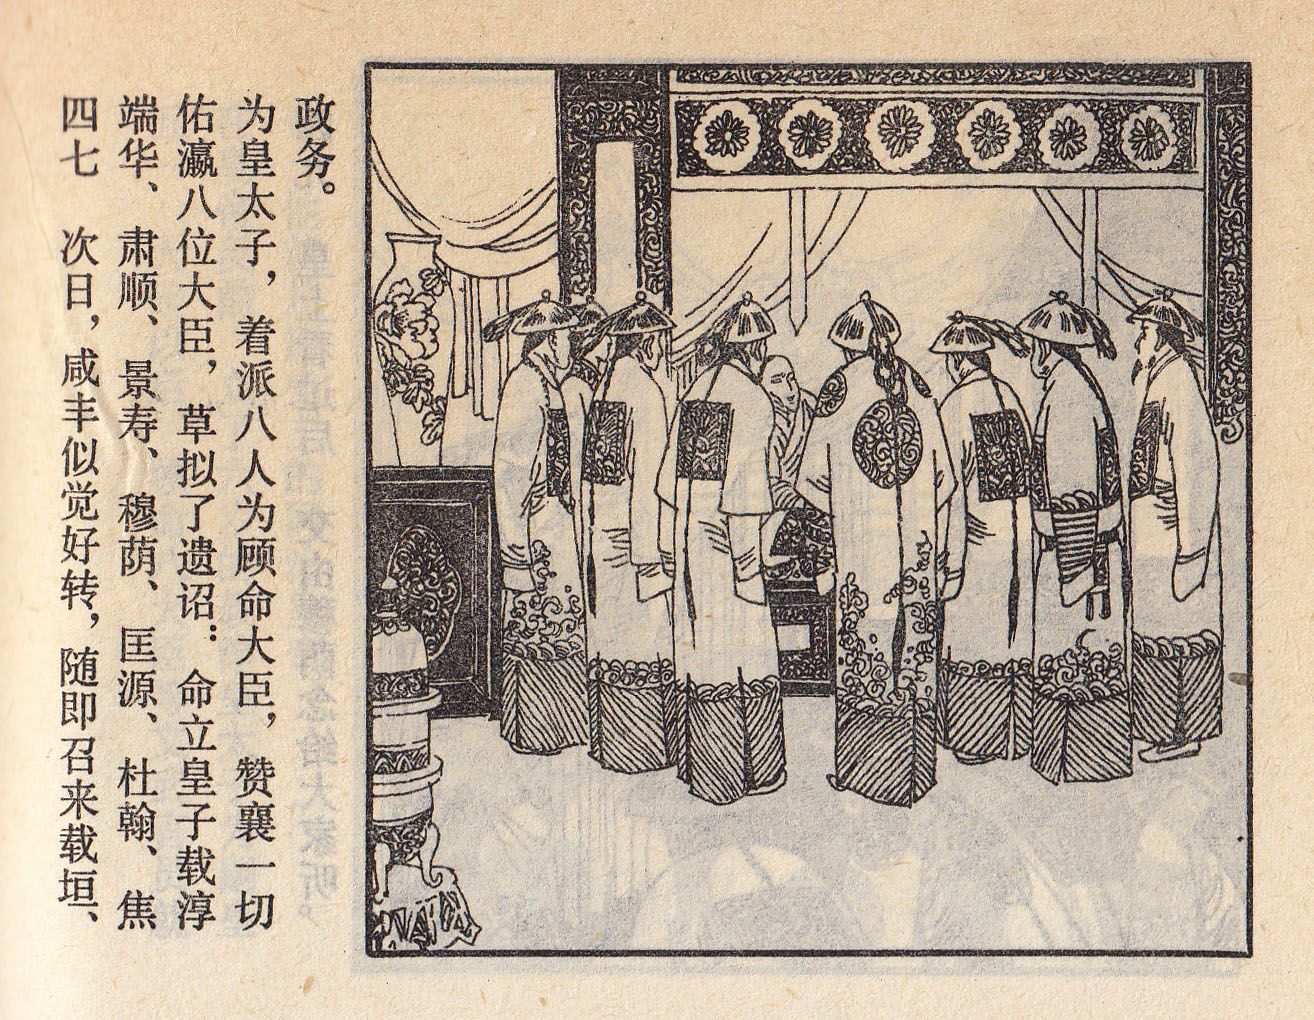 四七　次日，咸丰似觉好转，随即召来载垣、
端华、肃顺、景寿、穆荫、匡源、杜翰、焦
佑瀛八位大臣，草拟了遗诏：命立皇子载淳
为皇太子，着派八人为顾命大臣，赞襄一切
政务。